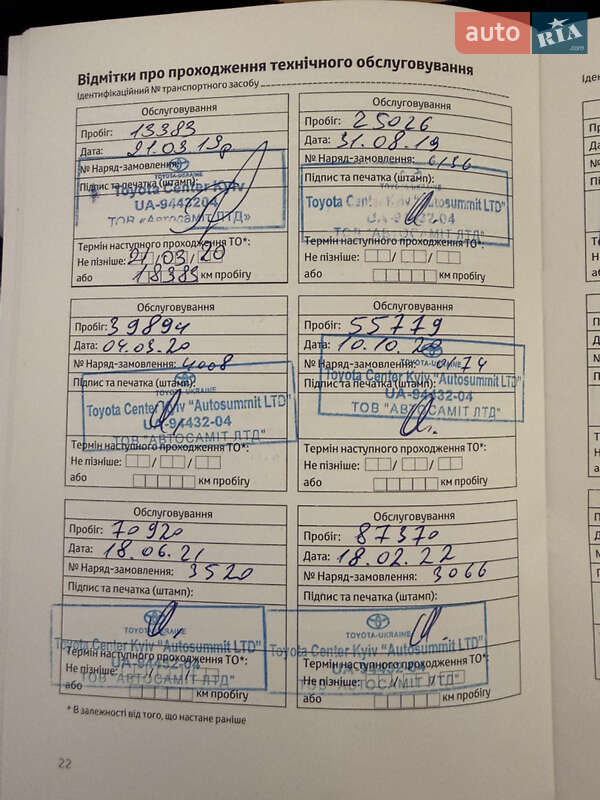 auto RIA.com
Відмітки про проходження технічного обслуговування
Ідентифікаційний № транспортного засобу
Обслуговування
Пробіг: 13383
Дата: 21.03.19р
№ Наряд-замовлення:
Підпис та печатка (штамп):
TOYOTA-UKRAINE
Toyota Center Kyiv
UA-9443204
ТОВ «АВТОСАМІТ ЛТД»
Термін наступного проходження ТО*:
Не пізніше: 21/03/20
або 18383 км пробігу
Обслуговування
Пробіг: 25026
Дата: 31.08.19
№ Наряд-замовлення: 6136
Підпис та печатка (штамп):
Toyota Center Kyiv "Autosummit LTD"
UA-94432-04
ТОВ "АВТОСАМІТ ЛТД"
Термін наступного проходження ТО*:
Не пізніше: / /
або км пробігу
Обслуговування
Пробіг: 39894
Дата: 04.03.20
№ Наряд-замовлення: 4008
Підпис та печатка (штамп):
TOYOTA-UKRAINE
Toyota Center Kyiv "Autosummit LTD"
UA-94432-04
ТОВ "АВТОСАМІТ ЛТД"
Термін наступного проходження ТО*:
Не пізніше: / /
або км пробігу
Обслуговування
Пробіг: 55779
Дата: 10.10.20
№ Наряд-замовлення: 0174
TOYOTA-UKRAINE
Підпис та печатка (штамп):
Toyota Center Kyiv "Autosummit LTD"
UA-94432-04
ТОВ "АВТОСАМІТ ЛТД"
Термін наступного проходження ТО*:
Не пізніше: / /
або км пробігу
Обслуговування
Пробіг: 70920
Дата: 18.06.21
№ Наряд-замовлення: 3520
Підпис та печатка (штамп):
TOYOTA-UKRAINE
Toyota Center Kyiv "Autosummit LTD"
Термін наступного проходження ТО*:
UA-94432-04
Не пізніше: / /
ТОВ "АВТОСАМІТ ЛТД"
або км пробігу
Обслуговування
Пробіг: 87370
Дата: 18.02.22
№ Наряд-замовлення: 3066
Підпис та печатка (штамп):
TOYOTA-UKRAINE
Toyota Center Kyiv "Autosummit LTD"
Термін наступного проходження ТО*:
UA-94432-04
Не пізніше: / /
ТОВ "АВТОСАМІТ ЛТД"
або км пробігу
* В залежності від того, що настане раніше
22